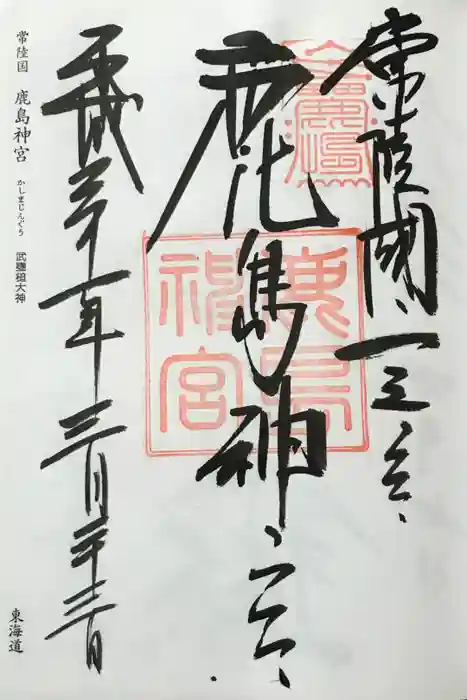 常陸國一之宮
鹿島神宮
鹿島
神宮
平成三十一年三月二十三日
常陸国 鹿島神宮 かしまじんぐう 武甕槌大神
東海道